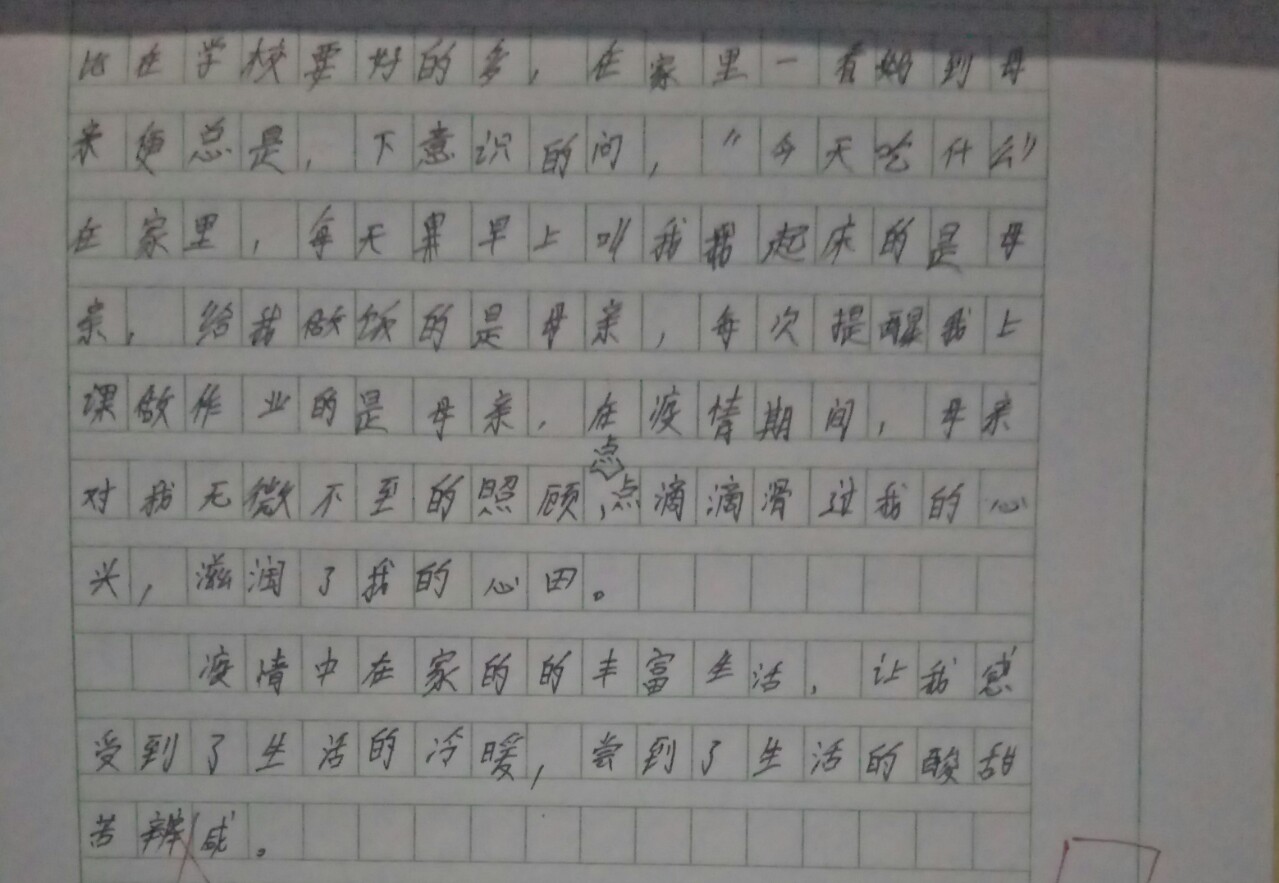 比在学校要好的多，在家里一看到母
亲便总是，下意识的问，“今天吃什么”
在家里，每天早上叫我起床的是母
亲，给我做饭的是母亲，每次提醒我上
课做作业的是母亲，在疫情期间，母亲
对我无微不至的照顾，点点滴滴滑过我的心
头，滋润了我的心田。
疫情中在家的的丰富生活，让我感
受到了生活的冷暖，尝到了生活的酸甜
苦辩咸。